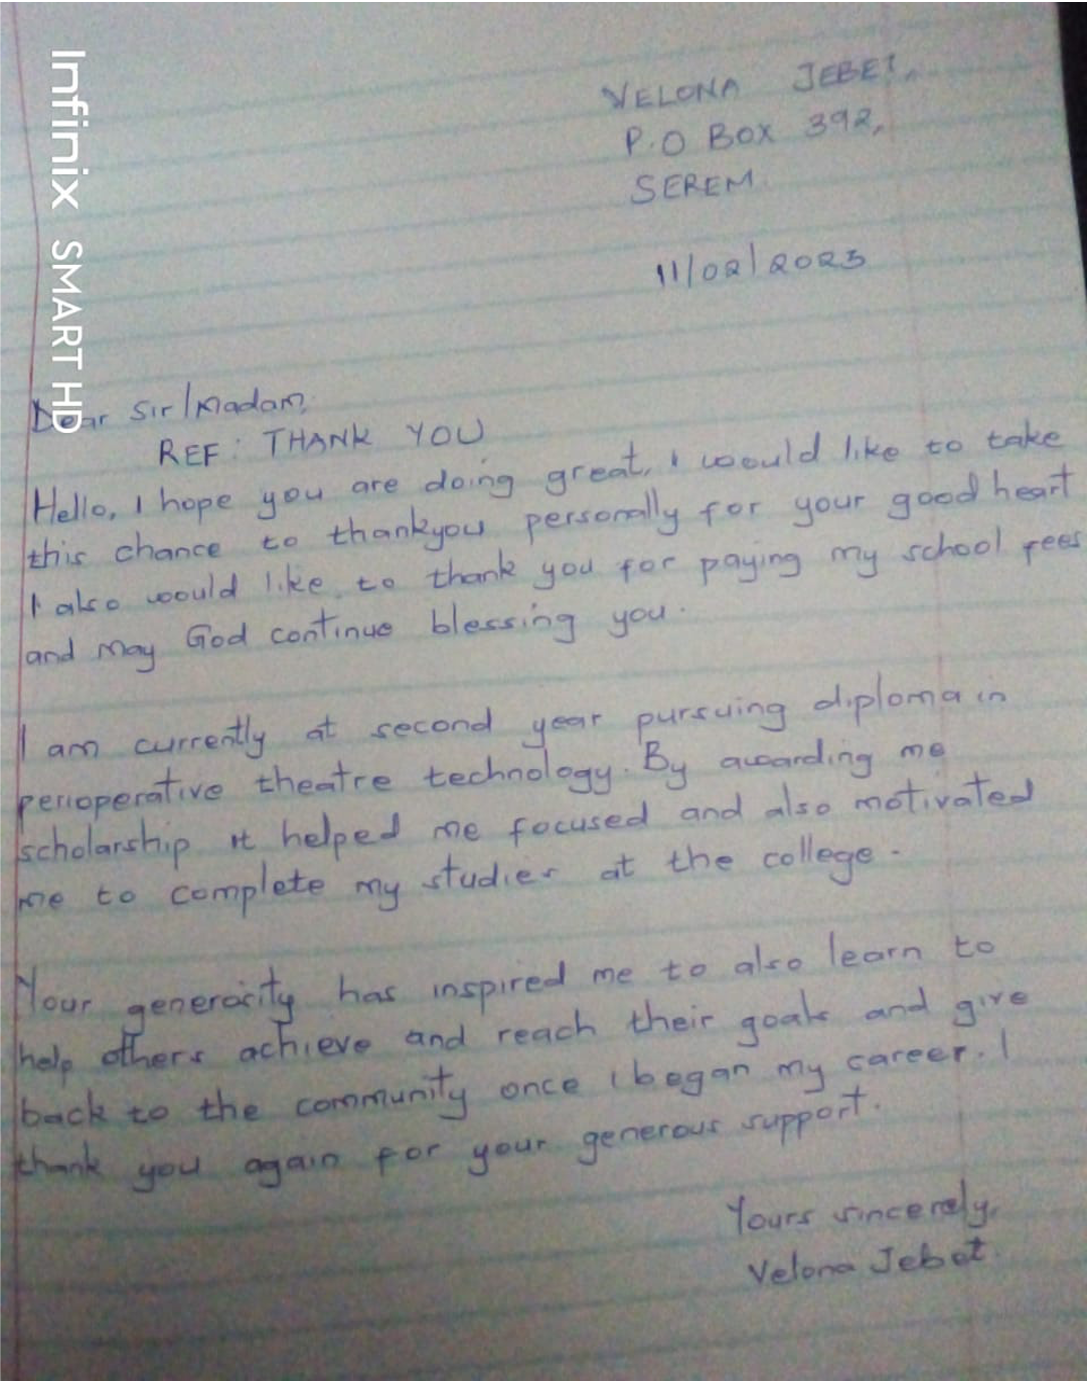 Infinix SMART HD
VELONA JEBET,
P.O BOX 392,
SEREM.
11/02/2023
Dear Sir/Madam,
REF: THANK YOU
Hello, I hope you are doing great, I would like to take
this chance to thankyou personally for your good heart
I also would like to thank you for paying my school fees
and may God continue blessing you.
I am currently at second year pursuing diploma in
perioperative theatre technology. By awarding me
scholarship it helped me focused and also motivated
me to complete my studies at the college.
Your generosity has inspired me to also learn to
help others achieve and reach their goals and give
back to the community once I began my career. I
thank you again for your generous support.
Yours sincerely,
Velona Jebet.